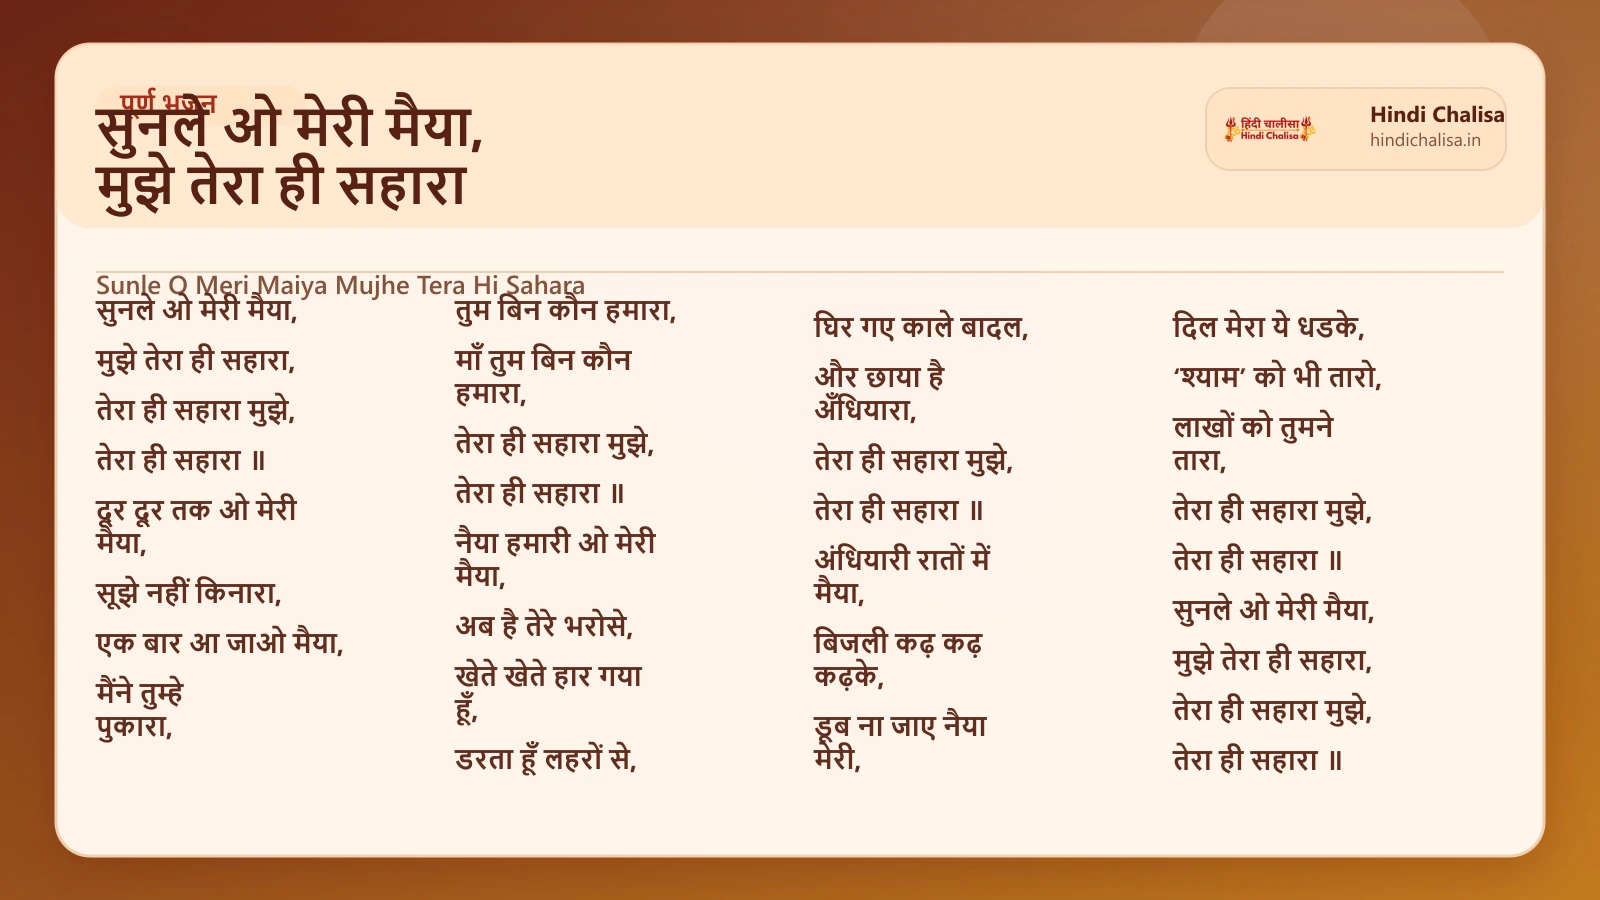 पूर्ण भजन
सुनले ओ मेरी मैया,
मुझे तेरा ही सहारा
हिंदी चालीसा
Hindi Chalisa
Hindi Chalisa
hindichalisa.in
Sunle O Meri Maiya Mujhe Tera Hi Sahara
सुनले ओ मेरी मैया,
मुझे तेरा ही सहारा,
तेरा ही सहारा मुझे,
तेरा ही सहारा ॥
दूर दूर तक ओ मेरी
मैया,
सूझे नहीं किनारा,
एक बार आ जाओ मैया,
मैंने तुम्हे
पुकारा,
तुम बिन कौन हमारा,
माँ तुम बिन कौन
हमारा,
तेरा ही सहारा मुझे,
तेरा ही सहारा ॥
नैया हमारी ओ मेरी
मैया,
अब है तेरे भरोसे,
खेते खेते हार गया
हूँ,
डरता हूँ लहरों से,
घिर गए काले बादल,
और छाया है
अँधियारा,
तेरा ही सहारा मुझे,
तेरा ही सहारा ॥
अंधियारी रातों में
मैया,
बिजली कढ़ कढ़
कढ़के,
डूब ना जाए नैया
मेरी,
दिल मेरा ये धडके,
‘श्याम’ को भी तारो,
लाखों को तुमने
तारा,
तेरा ही सहारा मुझे,
तेरा ही सहारा ॥
सुनले ओ मेरी मैया,
मुझे तेरा ही सहारा,
तेरा ही सहारा मुझे,
तेरा ही सहारा ॥